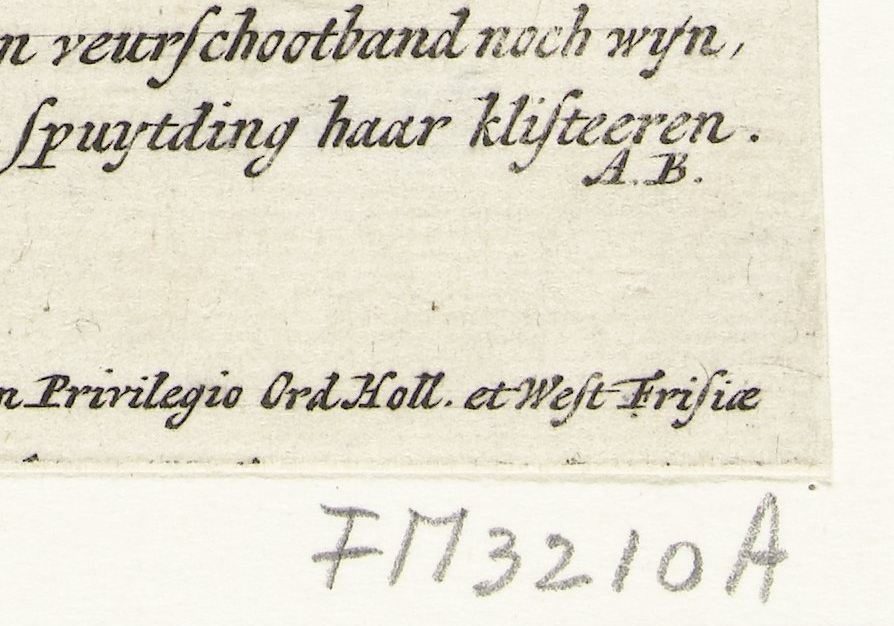 n veurſchootband noch wyn,
ſpuytding haar kliſteeren.
A.B.
n Privilegio Ord Holl. et Weſt-Friſiæ
FM3210A